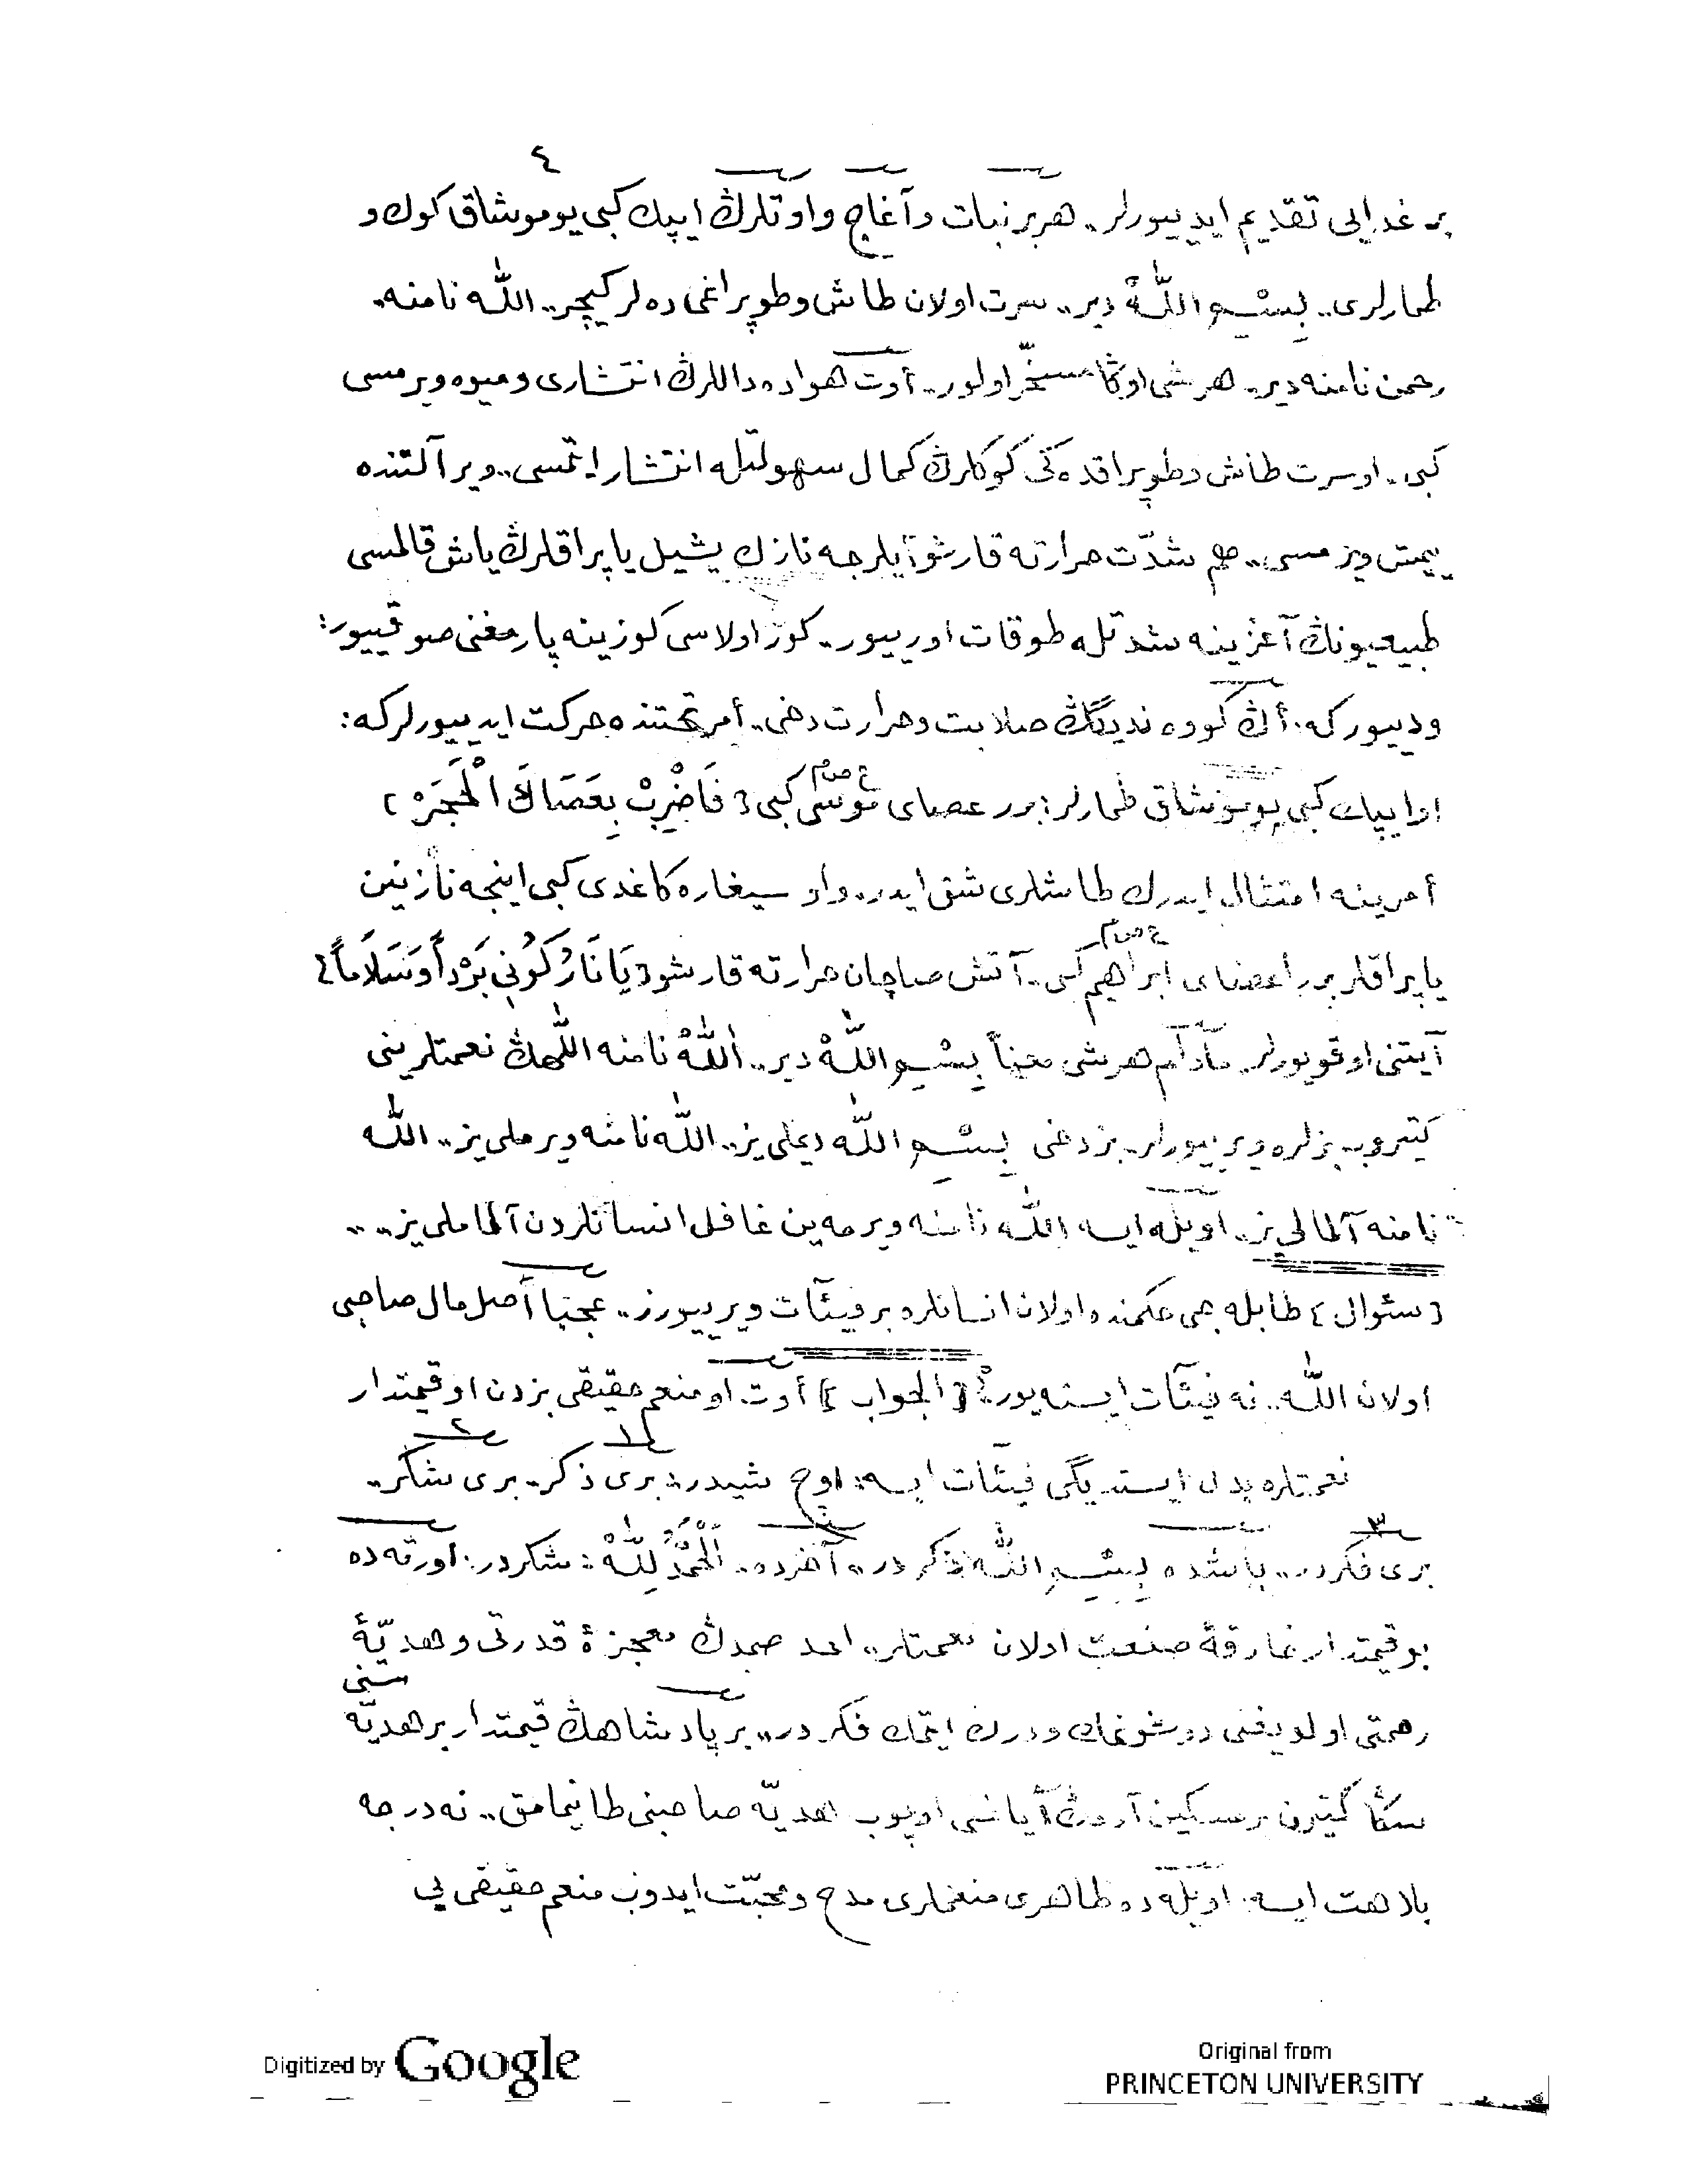 ٤
بر غدايى تقديم ايدييورلر.. هر بر نبات و آغاج و اوتلرڭ ايپك كبى يوموشاق كوك و
طمارلرى.. بِسْمِ اللّٰهْ دير.. سرت اولان طاش و طوپراغى دەلر كيچر.. اللّٰه نامنه.
رحمن نامنه دير.. هر شى اوڭا مسخّر اولور.. أوت هواده داللرڭ انتشارى و ميوه ويرمسى
كبى.. او سرت طاش و طوپراقده كى كوكلرڭ كمال سهولتله انتشار ايتمسى.. و ير آلتنده
ييمش ويرمسى.. هم شدّت حرارته قارشو آيلرجه نازك يشيل ياپراقلرڭ ياش قالمسى
طبيعيونڭ آغزينه شدتله طوقات اورييور.. كور اولاسى كوزينه پارمغنى صوقييور:
و دييور كه: أڭ كووەنديگڭ صلابت و حرارت دخى.. أمر تحتنده حركت ايدييورلر كه:
او ايپك كبى يوموشاق طمارلر: برر عصاى موسى ع‌م كبى ﴿ فَاضْرِبْ بِعَصَاكَ الْحَجَرْ ﴾
أمرينه امتثال ايدرك طاشلرى شق ايدر.. و او سيغاره كاغدى كبى اينجه نازنين
ياپراقلر برر أعضاى ابراهيم ع‌م كبى.. آتش صاچان حرارته قارشو ﴿ يَا نَارُ كُونِى بَرْداً وَسَلَاماً ﴾
آيتنى اوقويورلر مادام هر شى معناً بِسْمِ اللّٰهْ دير.. اَللّٰهْ نامنه اللّٰهڭ نعمتلرينى
كتيروب بزلره ويرييورلر.. بز دخى بِسْمِ اللّٰه ديملىيز.. اللّٰه نامنه ويرملىيز.. اللّٰه
نامنه آلمالىيز.. اويله ايسه اللّٰه نامنه ويرمەين غافل انسانلردن آلماملىيز....
﴿ سئوال ﴾ طابلەجى حكمنده اولان انسانلره بر فيئات ويرييورز.. عجبا أصل مال صاحبى
اولان اللّٰه.. نه فيئات ايستەيور؟ ﴿ الجواب ﴾ أوت او منعم حقيقى بزدن او قيمتدار
نعمتلره بدل ايستديگى فيئات ايسه: اوچ شيدر: ١ برى ذكر.. ٢ برى شكر..
٣ برى فكردر.. باشده بِسْمِ اللّٰه: ذكردر.. آخرده.. اَلْحَمْدُ لِلّٰهْ: شكردر: اورتەده
بو قيمتدار خارقۀ صنعت اولان نعمتلر.. احد صمدڭ معجزۀ قدرتى و هديّۀ
رحمتى اولديغنى دوشونمك و درك ايتمك فكردر.. بر پادشاهڭ قيمتدار بر هديّەسنى
سڭا كتيرن بر مسكين آدمڭ آياغنى اوپوب هديّه صاحبنى طانيمامق.. نه درجه
بلاهت ايسه. اويله ده ظاهرى منعملرى مدح و محبّت ايدوب منعم حقيقى يى
Digitized by Google
Original from
PRINCETON UNIVERSITY